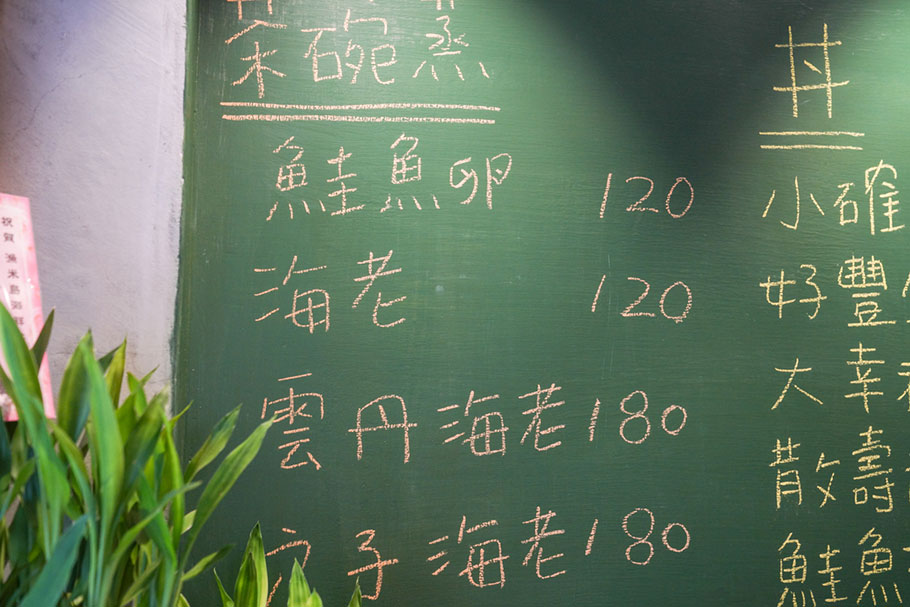 茶碗蒸
鮭魚卵 120
海老 120
雲丹海老 180
子海老 180
丼
小確
好豐
大幸
散壽
鮭魚
祝賀